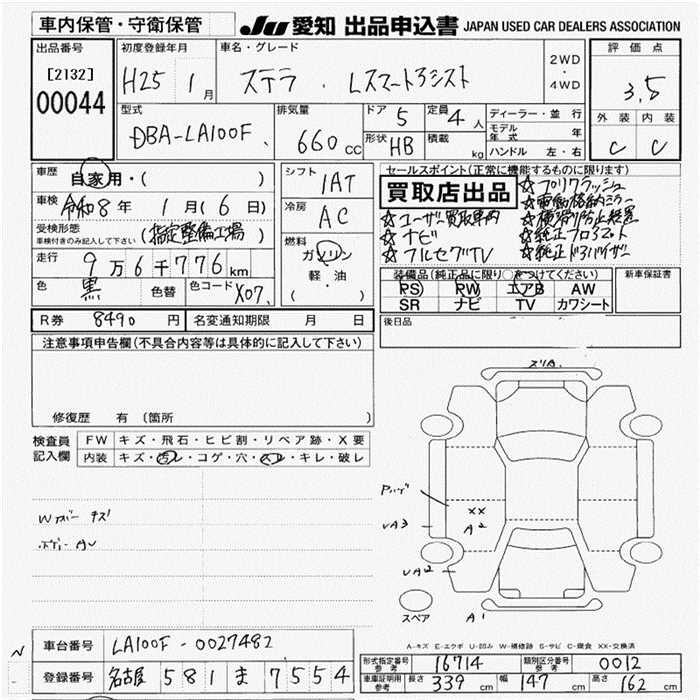 車内保管・守衛保管
JU 愛知 出品申込書 JAPAN USED CAR DEALERS ASSOCIATION
出品番号 [2132] 00044
初度登録年月 H25 1月
車名・グレード ステラ . Lスマートアシスト
2WD ・ 4WD
評価点 3.5
外装 内装
C C
型式 DBA-LA100F
排気量 660 CC
ドア 5 定員 4人
形状 HB 積載 kg
ディーラー・並行
モデル年式 年
ハンドル 左・右
車歴 自家用・( )
車検 令和8年 1月(6日)
受検形態 車検付きのみ記入して下さい (指定整備工場)
走行 9万6千776km
色 黒 色替 色コード X07
シフト IAT
冷房 AC
燃料 ガソリン 軽・油 ( )
セールスポイント(正常に機能するものに限ります)
買取店出品
☆プリクラッシュ
☆電動格納ミラー
☆ユーザー買取車両 ☆横滑り防止装置
☆ナビ ☆純正フロアマット
☆フルセグTV ☆純正ドアバイザー
装備品(純正品に限り○をつけてください) 新車保証書
PS PW エアB AW
SR ナビ TV カワシート
R券 8490円 名変通知期限 月 日
後日品
注意事項申告欄(不具合内容等は具体的に記入して下さい)
修復歴 有 (箇所
検査員記入欄
FW キズ・飛石・ヒビ割・リペア跡・X要
内装 キズ・汚レ・コゲ・穴・スレ・キレ・破レ
Wカバー キズ
ボデー AU
スリA
XX
A2
UA3
UA2
A1
スペア
A-キズ E-エクボ U-凹み W-補修跡 S-サビ C-腐食 XX-交換済
N
車台番号 LA100F-0027482
登録番号 名古屋 581 ま 7554
形式指定番号 参考 16714 類別区分番号 参考 0012
車庫証明用 参考 長さ 339 cm 幅 147 cm 高さ 162 cm